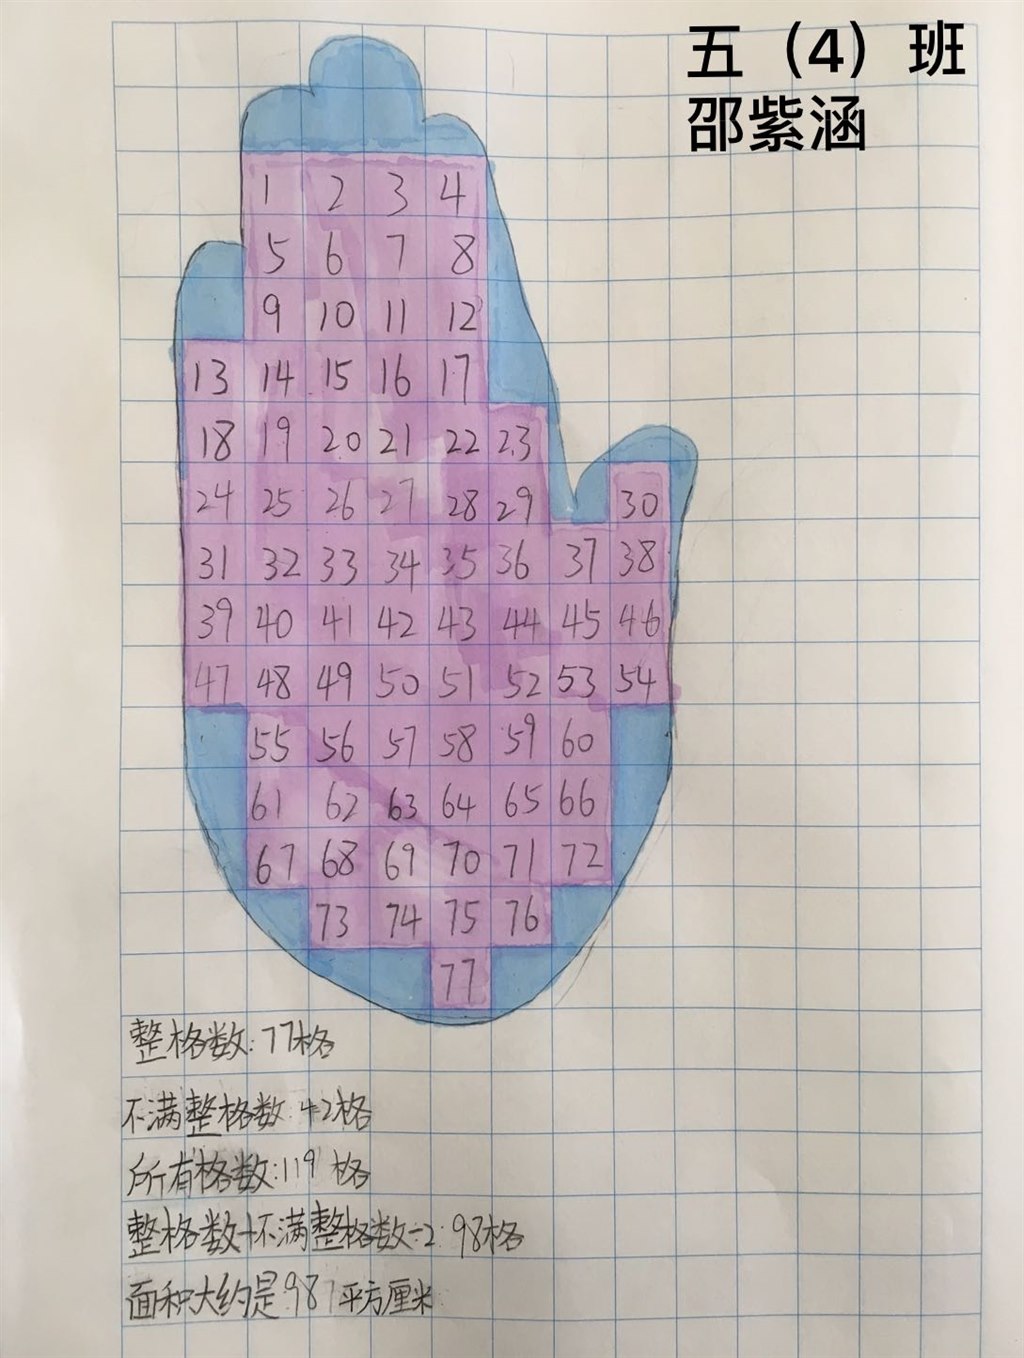 五（4）班
邵紫涵
1 2 3 4
5 6 7 8
9 10 11 12
13 14 15 16 17
18 19 20 21 22 23
24 25 26 27 28 29 30
31 32 33 34 35 36 37 38
39 40 41 42 43 44 45 46
47 48 49 50 51 52 53 54
55 56 57 58 59 60
61 62 63 64 65 66
67 68 69 70 71 72
73 74 75 76
77
整格数:77格
不满整格数:42格
所有格数:119格
整格数+不满整格数÷2:98格
面积大约是98平方厘米